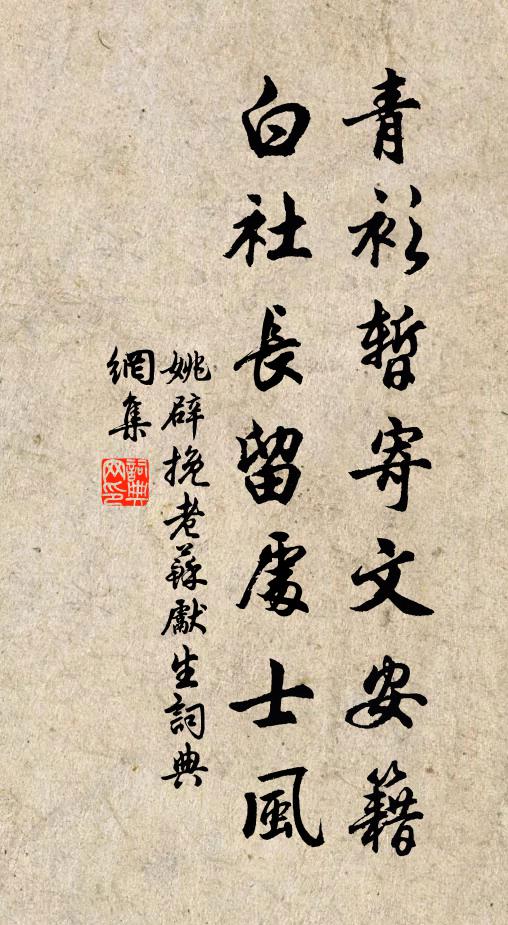 青衫暫寄文安籍
白社長留處士風
姚辟挽老蘇獻生詞典
網集
詞典
网印